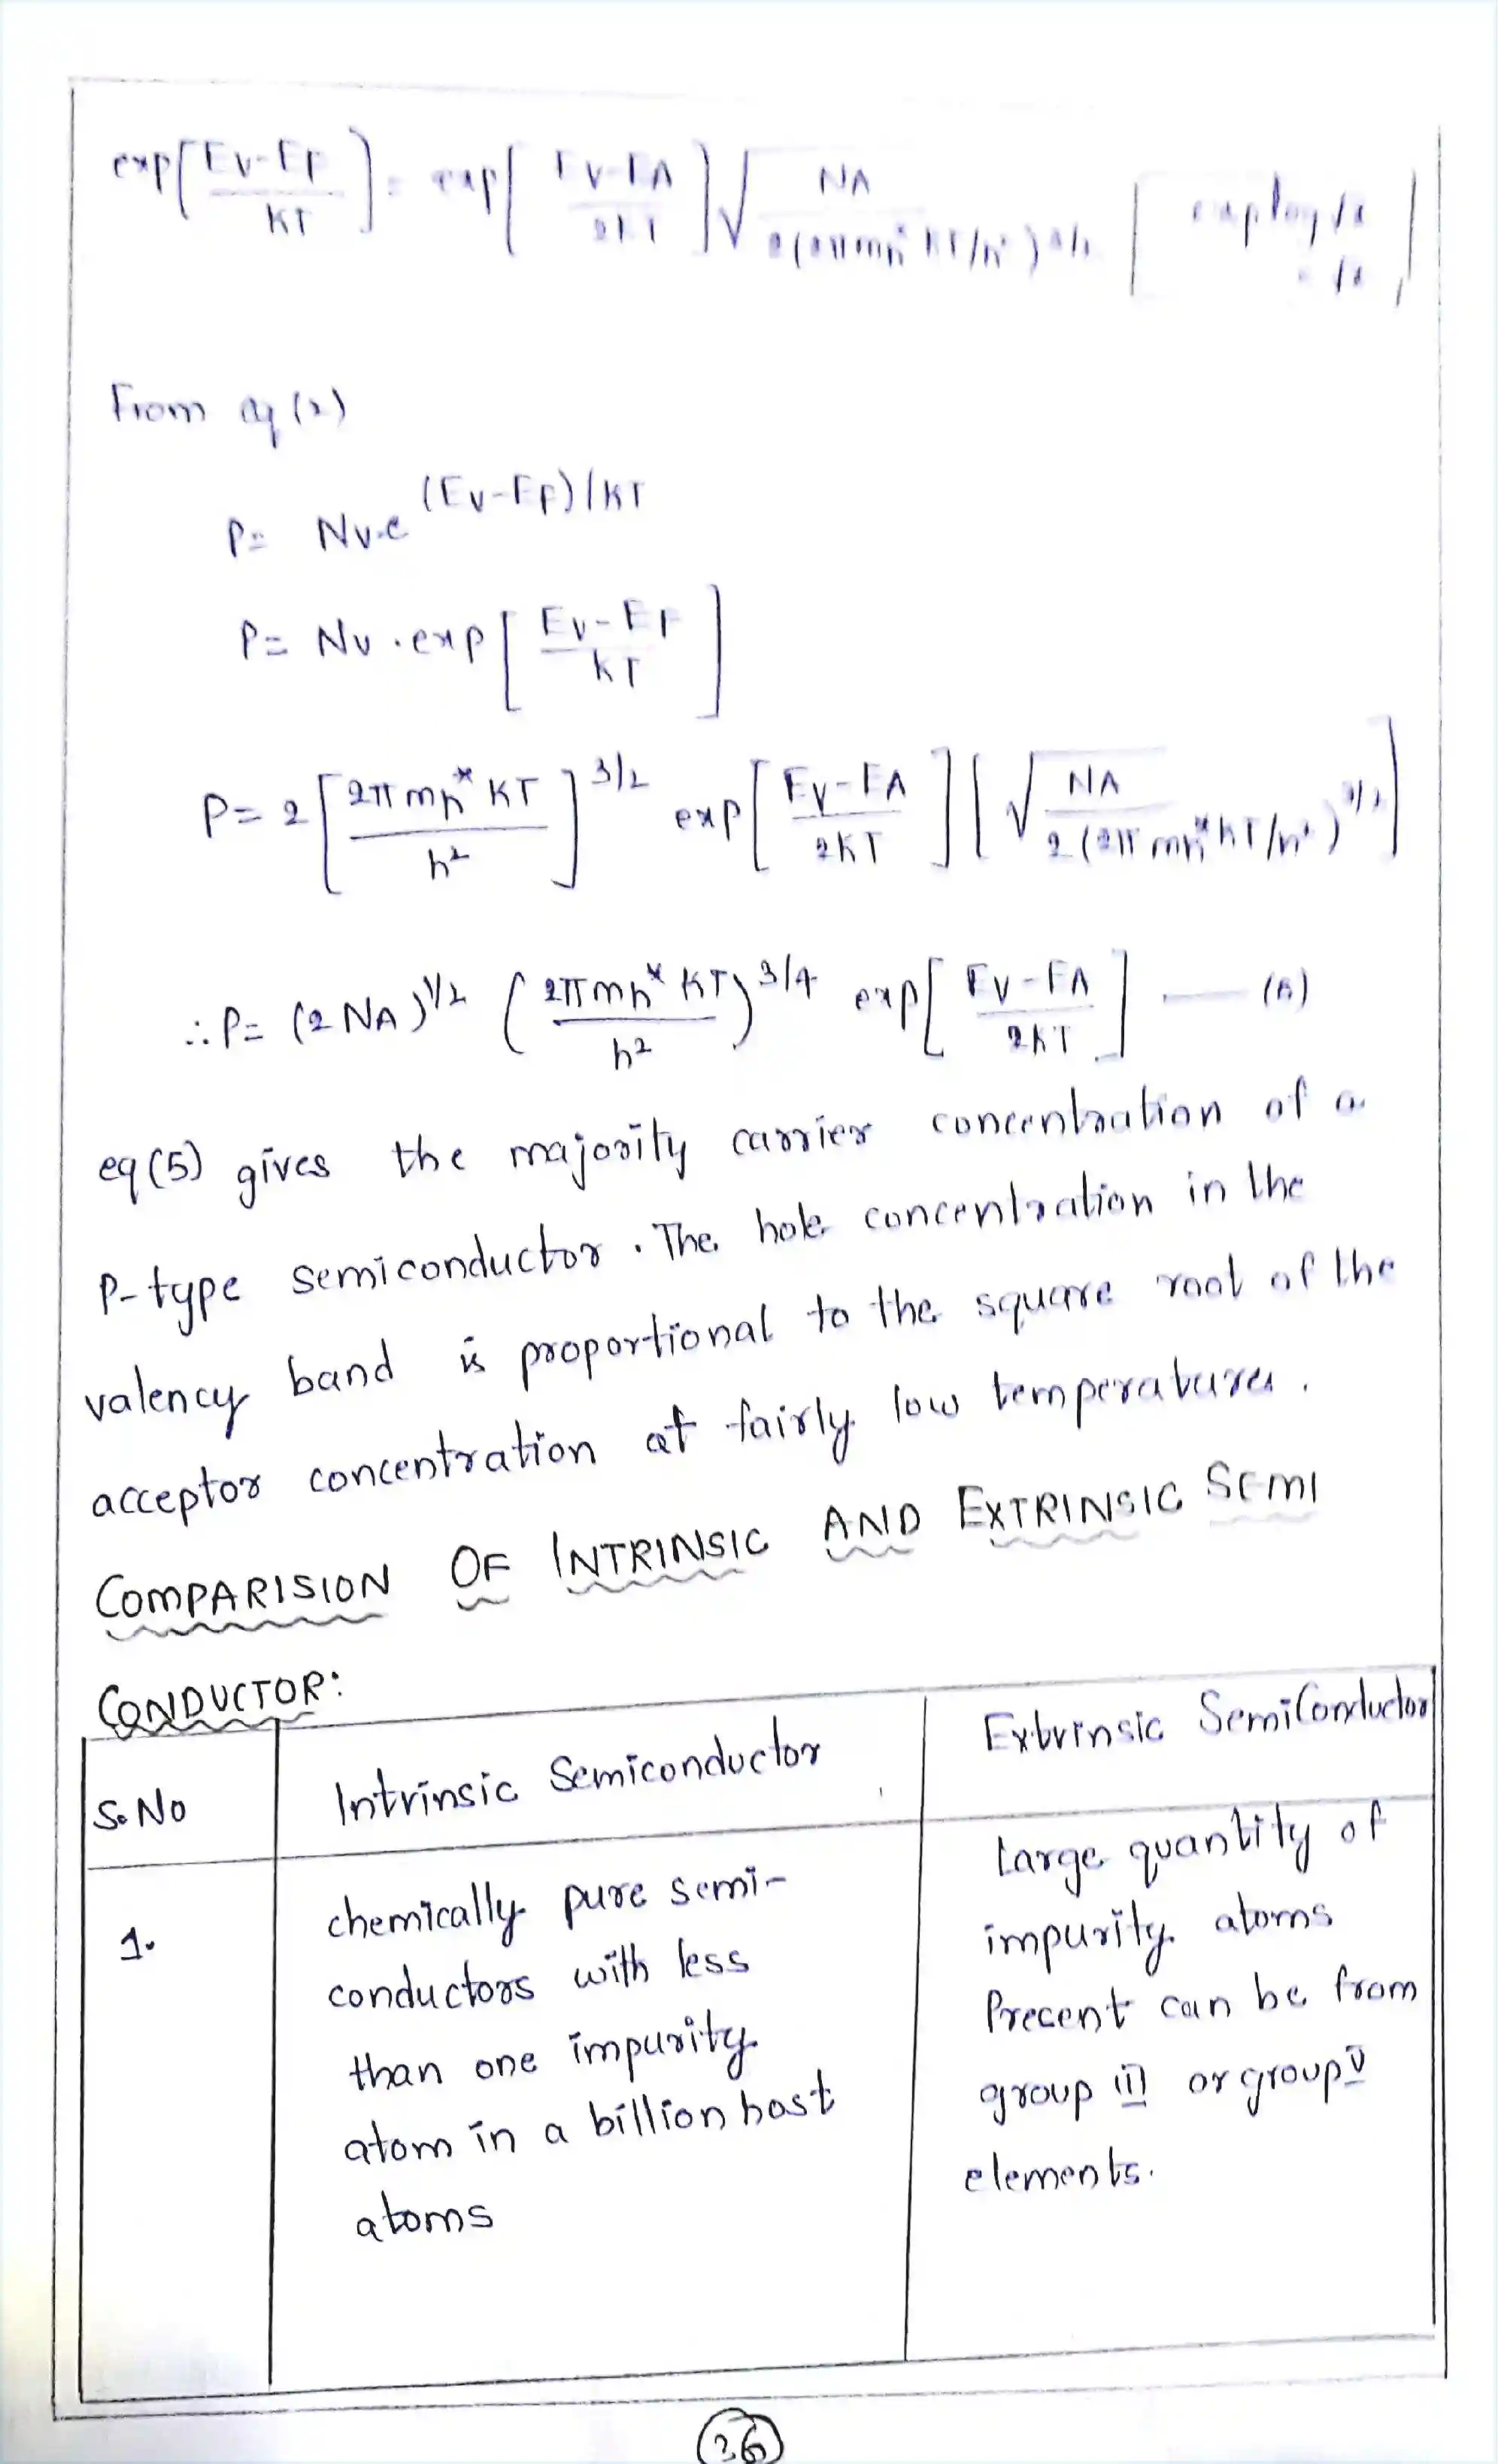 exp[Ev-EF/KT] = exp[Ev-EA/2KT] √NA/2(2πmh* KT/h²)3/2
From eq (2)
P= Nv.e (Ev-EF)/KT
P= Nv.exp[Ev-EF/KT]
P= 2[2πmh* KT/h²]3/2 exp[Ev-EA/2KT][√NA/2(2πmh*KT/h²)3/2]
∴P= (2NA)1/2 (2πmh* KT/h²)3/4 exp[Ev-EA/2KT] — (5)
eq(5) gives the majority carrier concentration of a
P-type semiconductor. The hole concentration in the
valency band is proportional to the square root of the
acceptor concentration at fairly low temperatures.
COMPARISION OF INTRINSIC AND EXTRINSIC SEMI
CONDUCTOR:
S.No
Intrinsic Semiconductor
Extrinsic SemiConductor
1.
chemically pure semi-
conductors with less
than one impurity
atom in a billion host
atoms
Large quantity of
impurity atoms
Precent can be from
group iii or group v
elements.
36